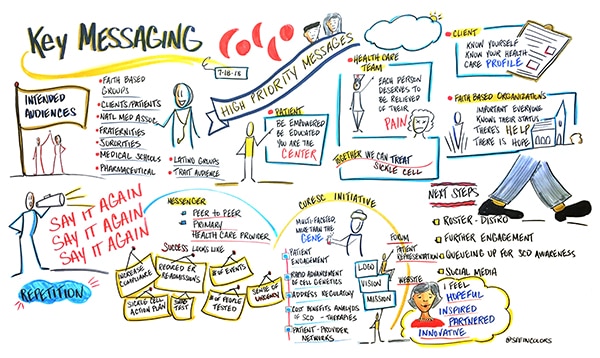 Key MESSAGING
7-18-18
HIGH PRIORITY MESSAGES
INTENDED
AUDIENCES
FAITH BASED
GROUPS
CLIENTS/PATIENTS
NATL MED ASSOC
FRATERNITIES
SURORITIES
MEDICAL SCHOOLS
PHARMACEUTICAL
LATINO GROUPS
TRAIT AUDIENCE
PATIENT
BE EMPOWERED
BE EDUCATED
YOU ARE THE
CENTER
HEALTH CARE
TEAM
EACH PERSON
DESERVES TO
BE RELIEVED
OF THEIR
PAIN
TOGETHER WE CAN TREAT
SICKLE CELL
CLIENT
KNOW YOURSELF
KNOW YOUR HEALTH
CARE PROFILE
FAITH BASED ORGANIZATIONS
IMPORTANT EVERYONE
KNOWS THEIR STATUS
THERE'S HELP
THERE IS HOPE
SAY IT AGAIN
SAY IT AGAIN
SAY IT AGAIN
REPETITION
MESSENGER
PEER TO PEER
PRIMARY
HEALTH CARE PROVIDER
SUCCESS LOOKS LIKE
INCREASE
COMPLIANCE
REDUCED ER
READMISSIONS
# OF EVENTS
SICKLE CELL
ACTION PLAN
TEST
# OF PEOPLE
TESTED
SENSE OF
URGENCY
CURESC INITIATIVE
MULTI-FACETED
MORE THAN THE
GENE
PATIENT
ENGAGEMENT
RAPID ADVANCEMENT
OF CELL GENETICS
ADDRESS REGULATORY
COST BENEFITS ANALYSIS
OF SCD - THERAPIES
PATIENT-PROVIDER
NETWORKS
FORUM
PATIENT
REPRESENTATION
LOGO
VISION
MISSION
WEBSITE
NEXT STEPS
ROSTER - DISTRO
FURTHER ENGAGEMENT
QUEUEING UP FOR SCD AWARENESS
SOCIAL MEDIA
I FEEL
HOPEFUL
INSPIRED
PARTNERED
INNOVATIVE
@SEEINCOLORS